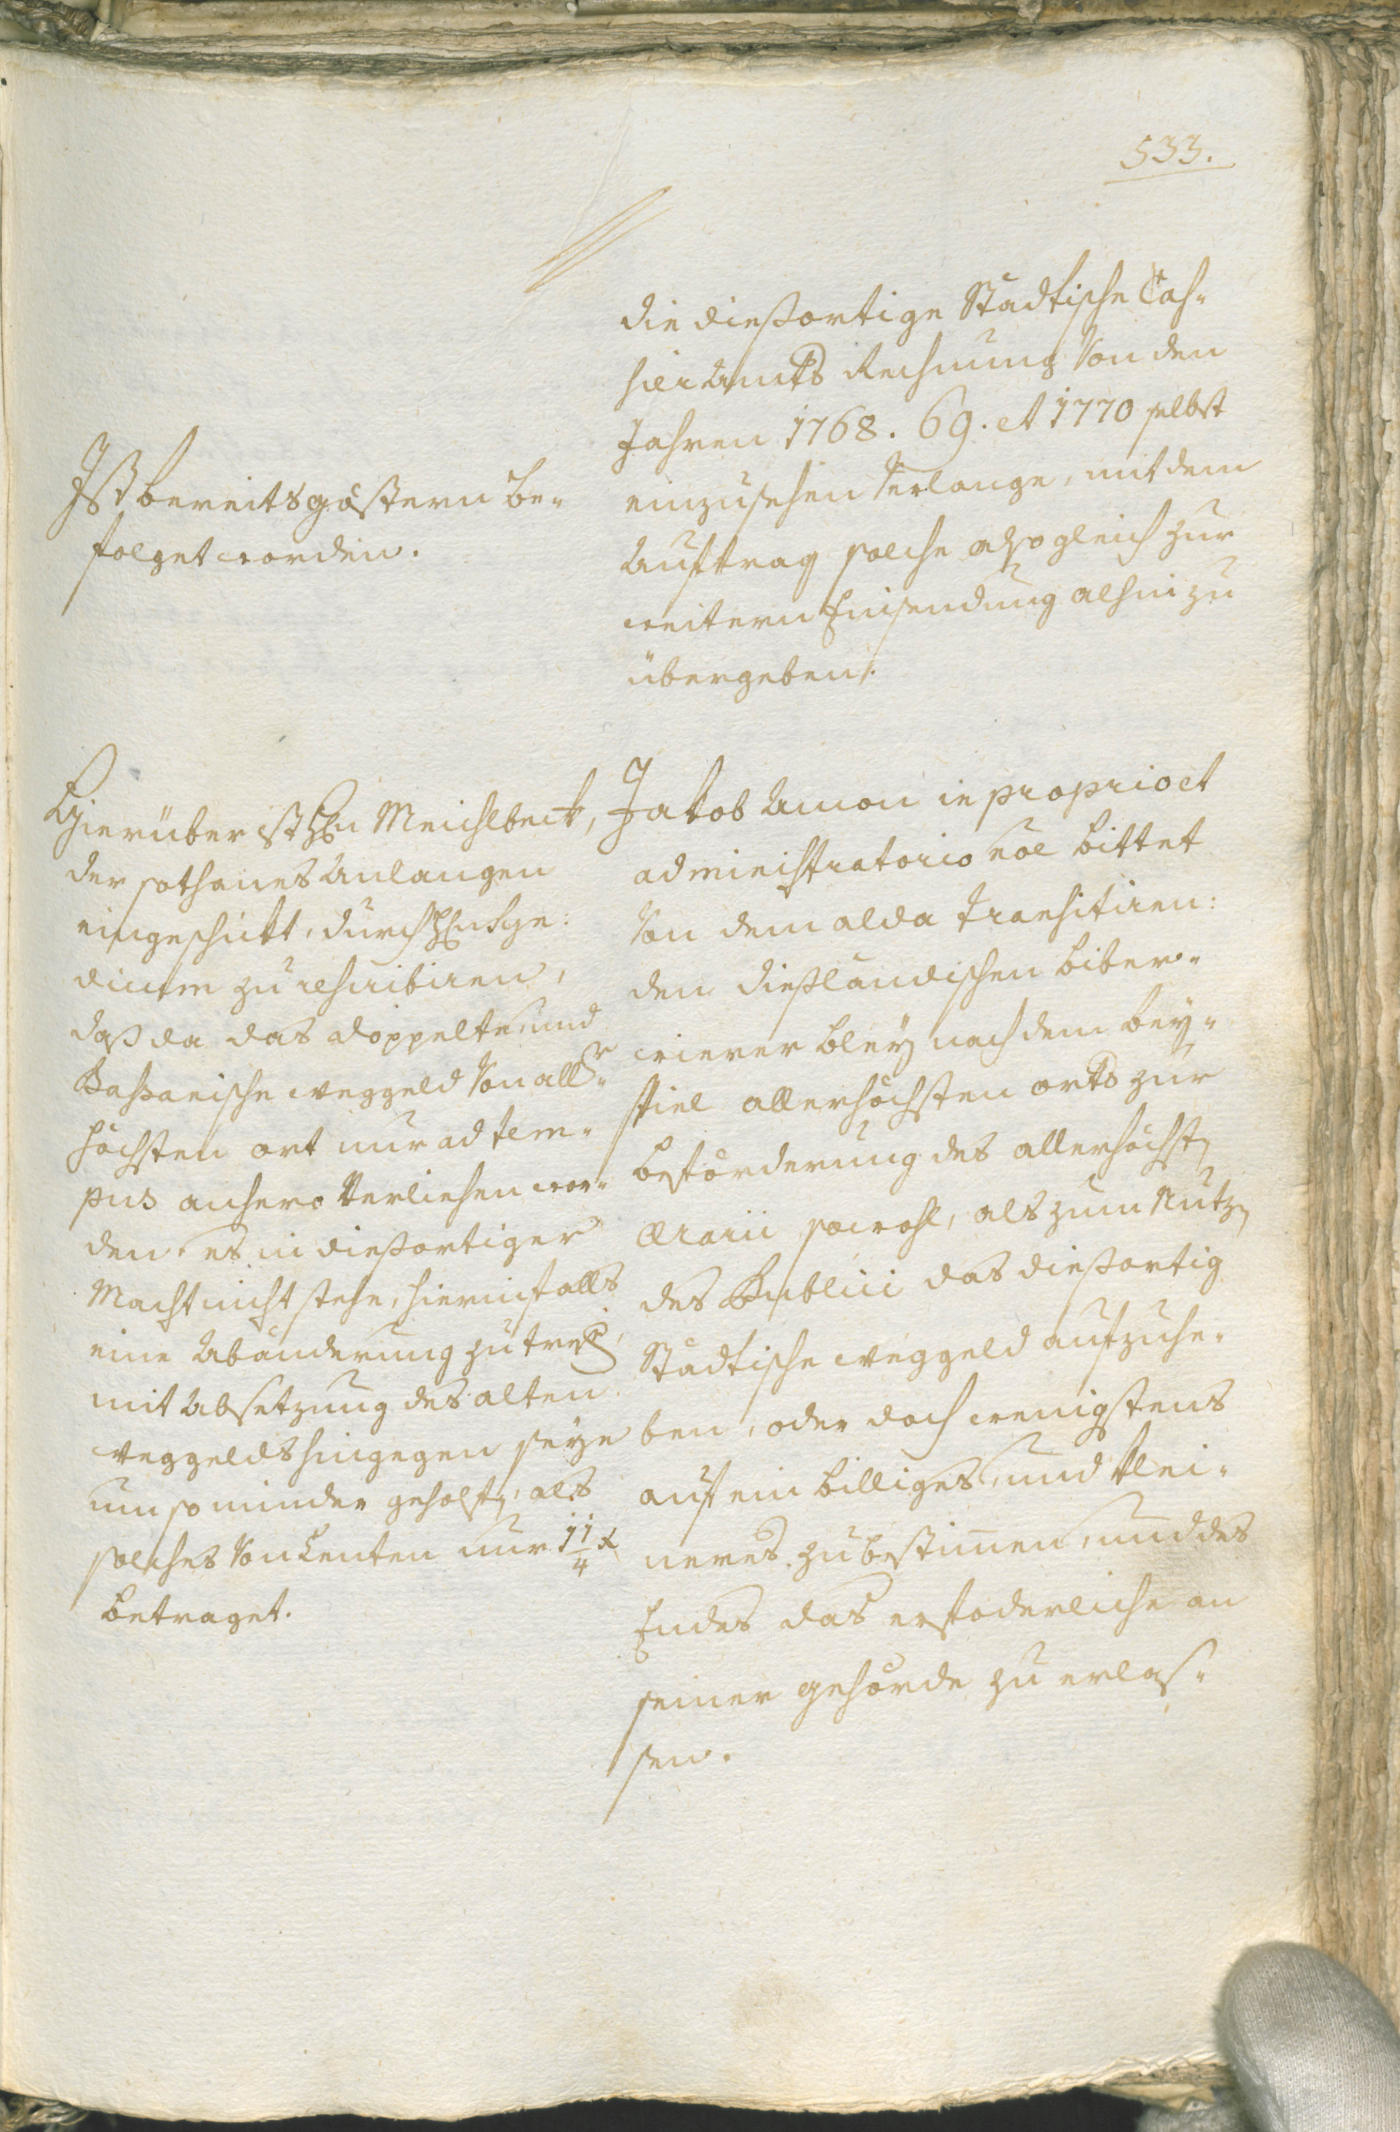 533.
die dießortige Städtische Cas-
sier Amts Rechnung von den
Jahren 1768. 69. et 1770 selbst
einzusehen verlange, mit dem
Auftrag solche also gleich zur
weitern Einsendung alhin zu
übergeben.
Ist bereits gestern be-
folget worden.
Jakob Amon in proprio et
administratorio noe bittet
von dem alda transitiren:
den dießländischen Biber-
wierer Bley nach dem bey-
spiel allerhöchsten orts zur
beförderung des allerhöchsten
Ærarii sowohl, als zum Nutzen
des Publici das dießortig
Städtische weggeld aufzuhe-
ben, oder doch wenigstens
auf ein billiges und klei-
neres zu bestimmen, und des
Endes das erfoderliche an
seiner gehörde zu erlas-
sen.
Hierüber ist Hrn Meichlbeck,
der sothanes Anlangen
eingeschickt, durch Hrn Syn:
dicum zu rescribiren,
daß da das doppelte und
Baßanische weggeld von aller-
höchsten ort nur ad tem-
pus anhero verliehen wor-
den, es in dießortiger
Macht nicht stehe, hierinfalls
eine Abänderung zu treffen,
mit Absetzung des alten
weggelds hingegen seye
um so minder geholfen, als
solches von Centen nur 1 1/4 x
betraget.